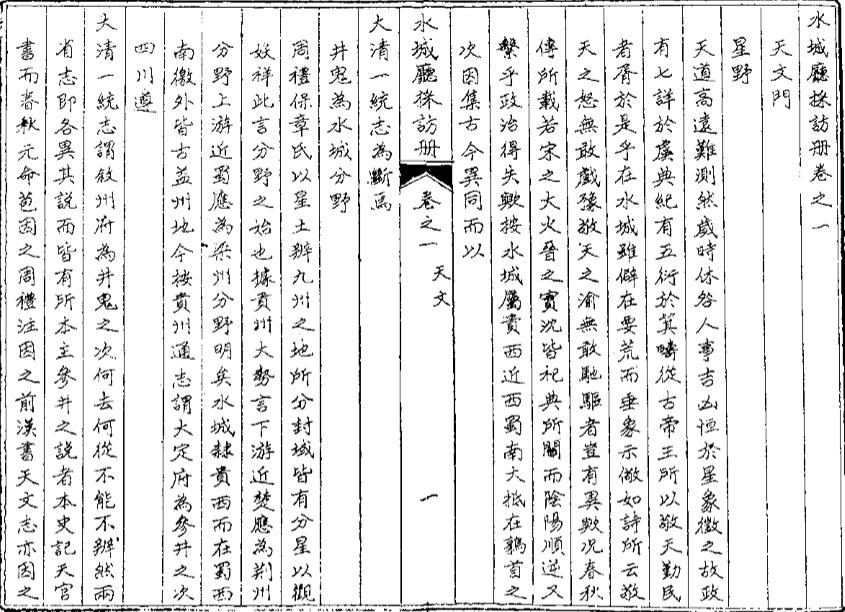 水城廳採訪册卷之一
天文門
星野
天道高遠難測然歲時休咎人事吉凶恒於星象徵之故政
有七詳於虞典紀有五衍於箕疇從古帝王所以敬天勤民
者胥於是乎在水城雖僻在要荒而垂象示儆如詩所云敬
天之怒無敢戲豫敬天之渝無敢馳驅者豈有異歟况春秋
傳所載若宋之大火晉之實沈皆祀典所關而陰陽順逆又
繫乎政治得失歟按水城屬貴西近西蜀南大抵在鶉首之
次因集古今異同而以
水城廳採訪册 卷之一 天文 一
大清一統志為斷焉
井鬼為水城分野
周禮保章氏以星土辨九州之地所分封域皆有分星以觀
妖祥此言分野之始也據貴州大勢言下游近楚應為荆州
分野上游近蜀應為梁州分野明矣水城隸貴西而在蜀西
南徼外皆古益州地今按貴州通志謂大定府為參井之次
四川遵
大清一統志謂敘州府為井鬼之次何去何從不能不辨然兩
省志即各異其說而皆有所本主參井之說者本史記天官
書而春秋元命苞因之周禮注因之前漢書天文志亦因之